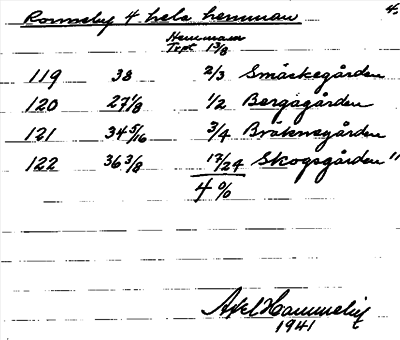 4.
Ronneby 4 hela hemman
Hemman
Tept 13/8
119 38 2/3 Småskegården
120 27 1/8 1/2 Bergagården
121 34 5/16 3/4 Bräknegården
122 36 3/8 17/24 Skogsgården "
4 %
Axel Hammelin
1941